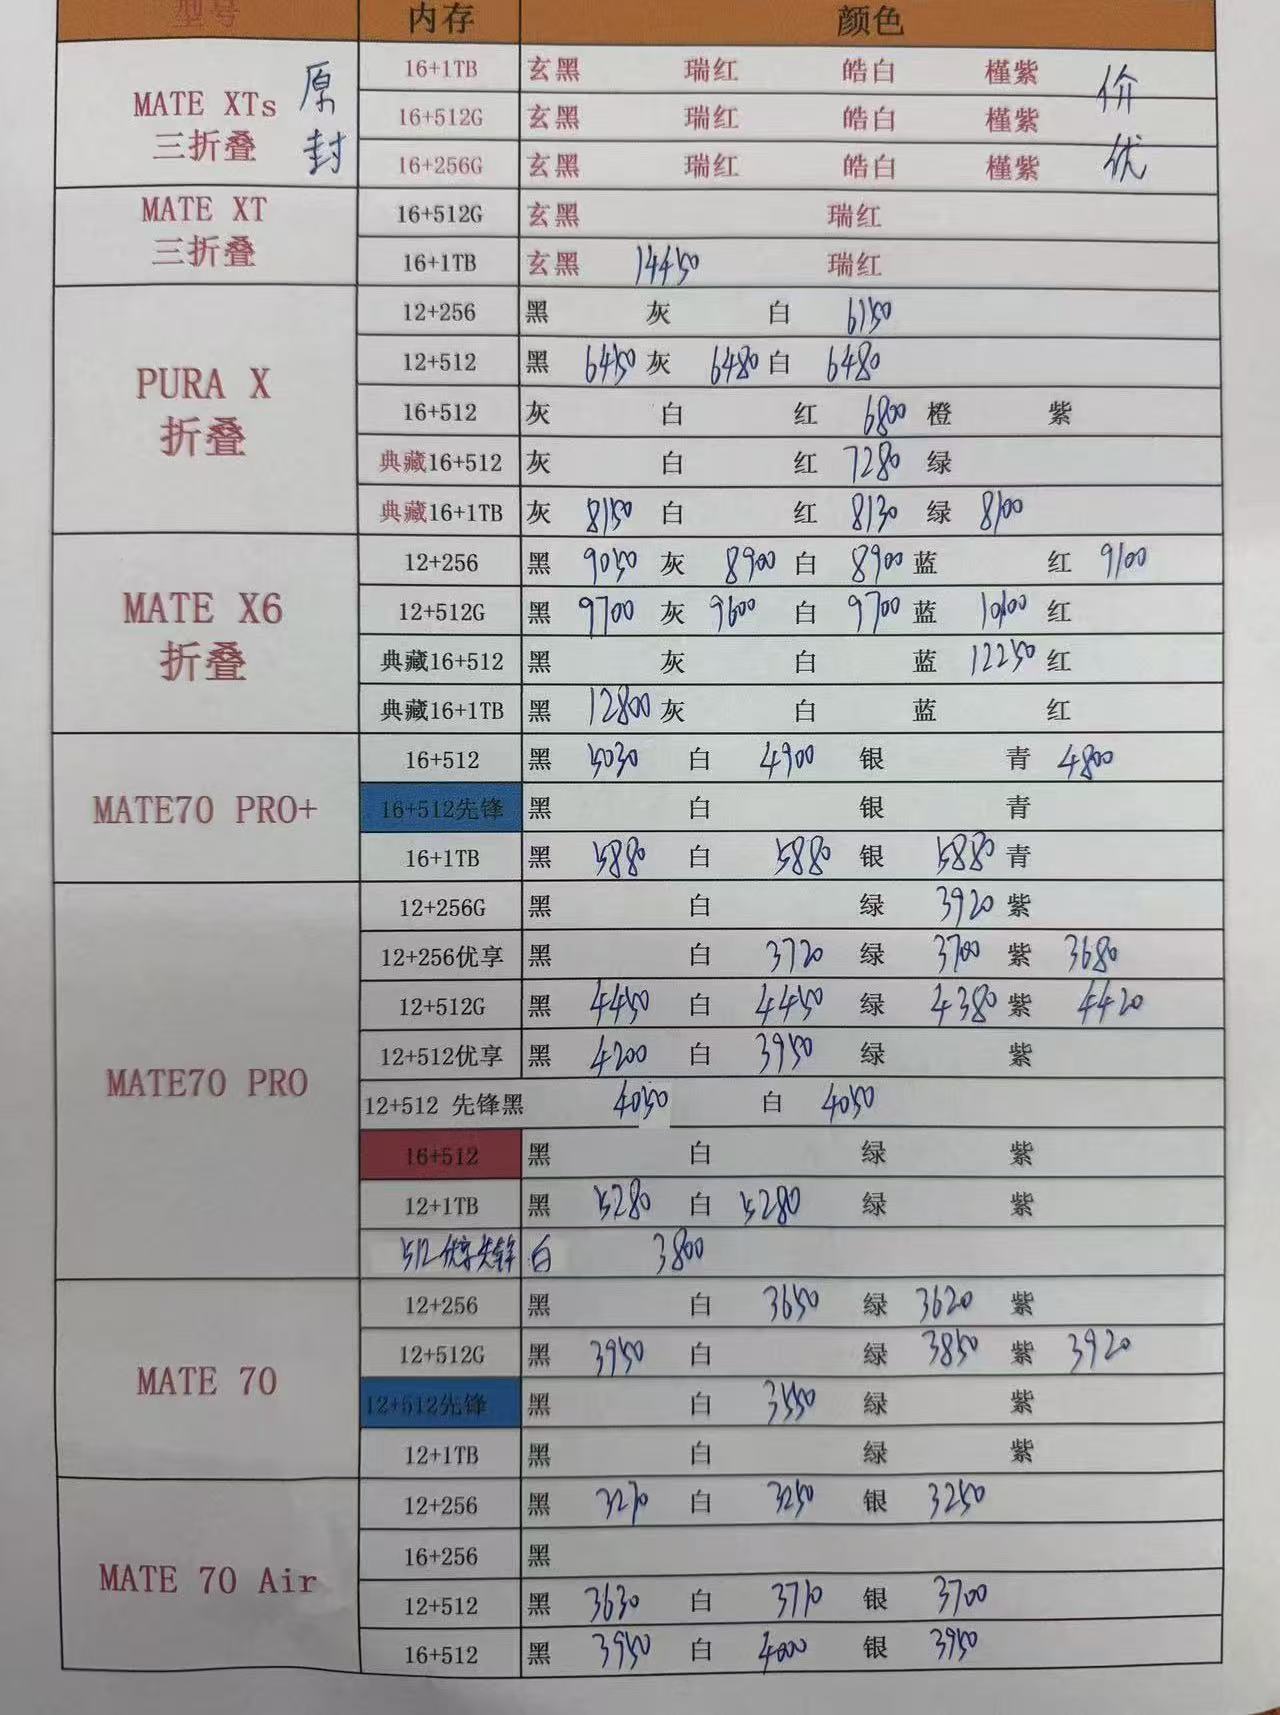 型号 内存 颜色
MATE XTs 三折叠 原封 16+1TB 玄黑 瑞红 皓白 槿紫 价优
16+512G 玄黑 瑞红 皓白 槿紫
16+256G 玄黑 瑞红 皓白 槿紫
MATE XT 三折叠 16+512G 玄黑 瑞红
16+1TB 玄黑 14450 瑞红
PURA X 折叠 12+256 黑 灰 白 6150
12+512 黑 6450 灰 6480 白 6480
16+512 灰 白 红 6800 橙 紫
典藏16+512 灰 白 红 7280 绿
典藏16+1TB 灰 8150 白 红 8130 绿 8100
MATE X6 折叠 12+256 黑 9050 灰 8900 白 8900 蓝 红 9100
12+512G 黑 9700 灰 9600 白 9700 蓝 10100 红
典藏16+512 黑 灰 白 蓝 12250 红
典藏16+1TB 黑 12800 灰 白 蓝 红
MATE70 PRO+ 16+512 黑 5030 白 4900 银 青 4800
16+512先锋 黑 白 银 青
16+1TB 黑 5880 白 5880 银 5880 青
MATE70 PRO 12+256G 黑 白 绿 3920 紫
12+256优享 黑 白 3720 绿 3700 紫 3680
12+512G 黑 4450 白 4450 绿 4380 紫 4420
12+512优享 黑 4200 白 3950 绿 紫
12+512 先锋黑 4050 白 4050
16+512 黑 白 绿 紫
12+1TB 黑 5280 白 5280 绿 紫
512优享先锋 白 3800
MATE 70 12+256 黑 白 3650 绿 3620 紫
12+512G 黑 3950 白 绿 3850 紫 3920
12+512先锋 黑 白 3550 绿 紫
12+1TB 黑 白 绿 紫
MATE 70 Air 12+256 黑 3270 白 3250 银 3250
16+256 黑
12+512 黑 3630 白 3710 银 3700
16+512 黑 3950 白 4000 银 3950